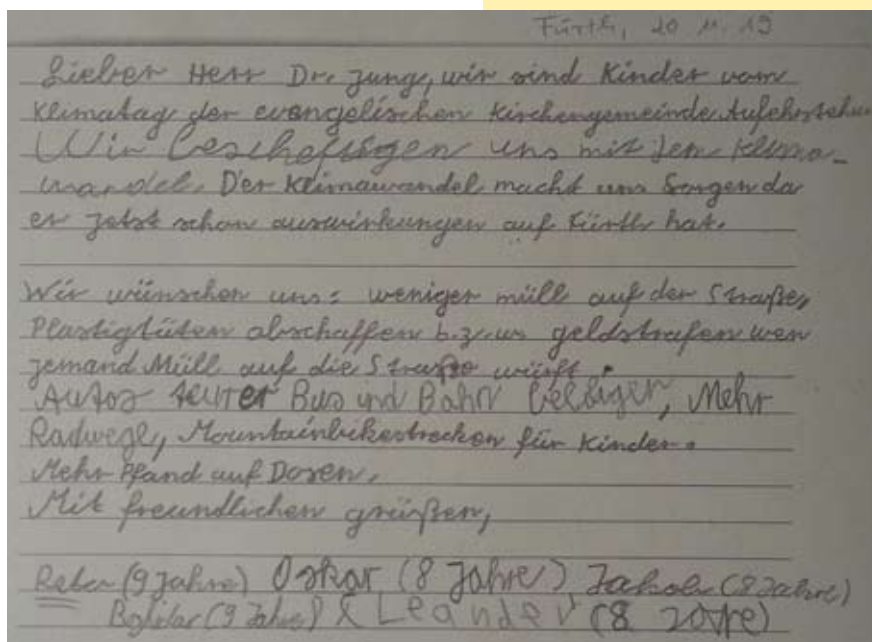 Fürth, 20.11.19
Lieber Herr Dr. Jung, wir sind Kinder vom
Klimatag der evangelischen Kirchengemeinde Aufehrstehun
Wir bescheftigen uns mit dem Klima-
wandel. Der Klimawandel macht uns Sorgen da
er jetzt schon auswirkungen auf Fürth hat.
Wir wünschen uns: weniger müll auf der Straße,
Plastigtüten abschaffen b.z.w. geldstrafen wen
jemand Müll auf die Straße würft.
Autos teurer Bus und Bahn billiger, Mehr
Radwege, Mountainbikestrecken für Kinder.
Mehr Pfand auf Dosen.
Mit freundlichen grüßen,
(9 Jahre) Oskar (8 Jahre) Jakob (8 Jahre)
(9 Jahre) & Leander (8 Jahre)